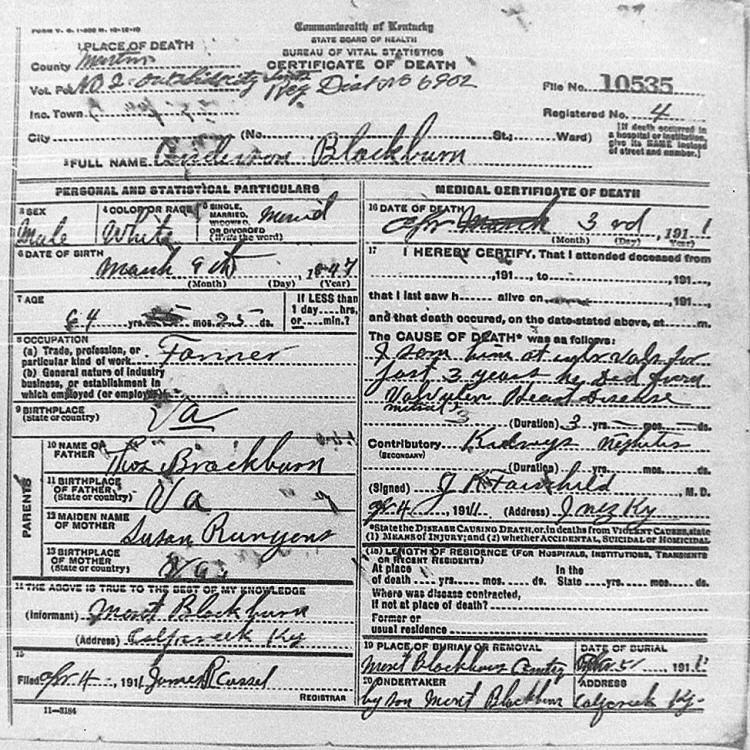 FORM V. S. 1-
Commonwealth of Kentucky
STATE BOARD OF HEALTH
BUREAU OF VITAL STATISTICS
CERTIFICATE OF DEATH
1 PLACE OF DEATH
County Martin
Vot. No 2
Reg Dist No 6902
File No. 10535
Inc. Town
Registered No. 4
City (No. St.; Ward)
[If death occurred in a hospital or institution, give its NAME instead of street and number.]
2 FULL NAME Anderson Blackburn
PERSONAL AND STATISTICAL PARTICULARS
3 SEX
Male
4 COLOR OR RACE
White
5 SINGLE, MARRIED, WIDOWED, OR DIVORCED (Write the word)
6 DATE OF BIRTH
March 9th 1847
(Month) (Day) (Year)
7 AGE
64 yrs. mos. 25 ds.
If LESS than 1 day hrs. or min.?
8 OCCUPATION
(a) Trade, profession, or particular kind of work Farmer
(b) General nature of industry business, or establishment in which employed (or employer)
9 BIRTHPLACE
(State or country)
Va
PARENTS
10 NAME OF FATHER
Thos Brackburn
11 BIRTHPLACE OF FATHER
(State or country)
Va
12 MAIDEN NAME OF MOTHER
Susan Runyons
13 BIRTHPLACE OF MOTHER
(State or country)
Va
14 THE ABOVE IS TRUE TO THE BEST OF MY KNOWLEDGE
(Informant) Mont Blackburn
(Address) Ky
15
Filed Apr 4, 1911 James R Cassel
REGISTRAR
11-3184
MEDICAL CERTIFICATE OF DEATH
16 DATE OF DEATH
Apr March 3rd 1911
(Month) (Day) (Year)
17 I HEREBY CERTIFY, That I attended deceased from
, 191 , to , 191 ,
that I last saw h alive on , 191 ,
and that death occured, on the date stated above, at m.
The CAUSE OF DEATH* was as follows:
I him at for
3 years he Died from
Heart Disease
(Duration) 3 yrs. mos. ds.
Contributory Kidneys
(SECONDARY)
(Duration) yrs. mos. ds.
(Signed) J R Fairchild, M. D.
Apr 4, 1911 (Address) Inez Ky
*State the DISEASE CAUSING DEATH, or, in deaths from VIOLENT CAUSES, state
(1) MEANS OF INJURY; and (2) whether ACCIDENTAL, SUICIDAL or HOMICIDAL
(18) LENGTH OF RESIDENCE (FOR HOSPITALS, INSTITUTIONS, TRANSIENTS
OR RECENT RESIDENTS)
At place of death yrs. mos. ds. In the State yrs. mos. ds.
Where was disease contracted, if not at place of death?
Former or usual residence
19 PLACE OF BURIAL OR REMOVAL
Mont Blackburn
DATE OF BURIAL
191
20 UNDERTAKER
by son Mont Blackburn
ADDRESS
Ky